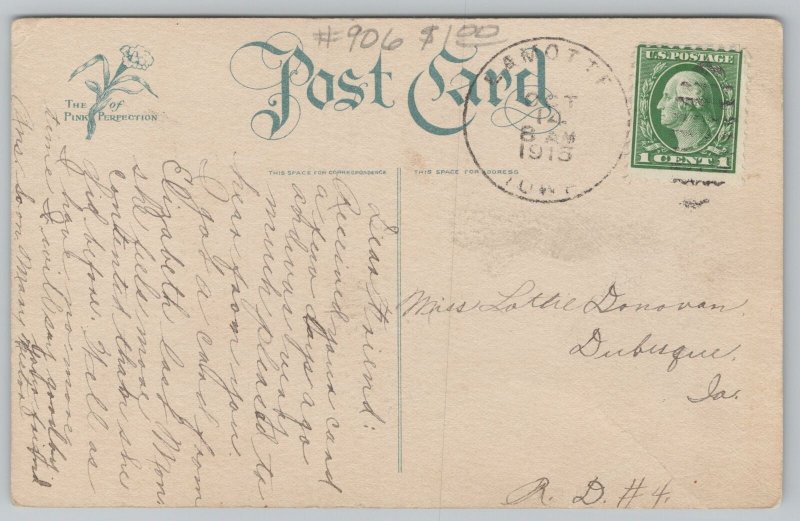 #906 $1.00
Post Card
THE PINK of PERFECTION
THIS SPACE FOR CORRESPONDENCE
THIS SPACE FOR ADDRESS
LAMOTTE
OCT
14
8 AM
1915
IOWA
U.S. POSTAGE
1 CENT 1
Dear Friend:
Received your card
a few days ago
and was very
much pleased to
hear from you.
I got a card from
Elizabeth last Mon.
she feels more
contented than she
did before. Well as
I have no more
time I will say goodbye
Ans. soon
Miss Lottie Donovan
Dubuque,
Ia.
R. D. #4.